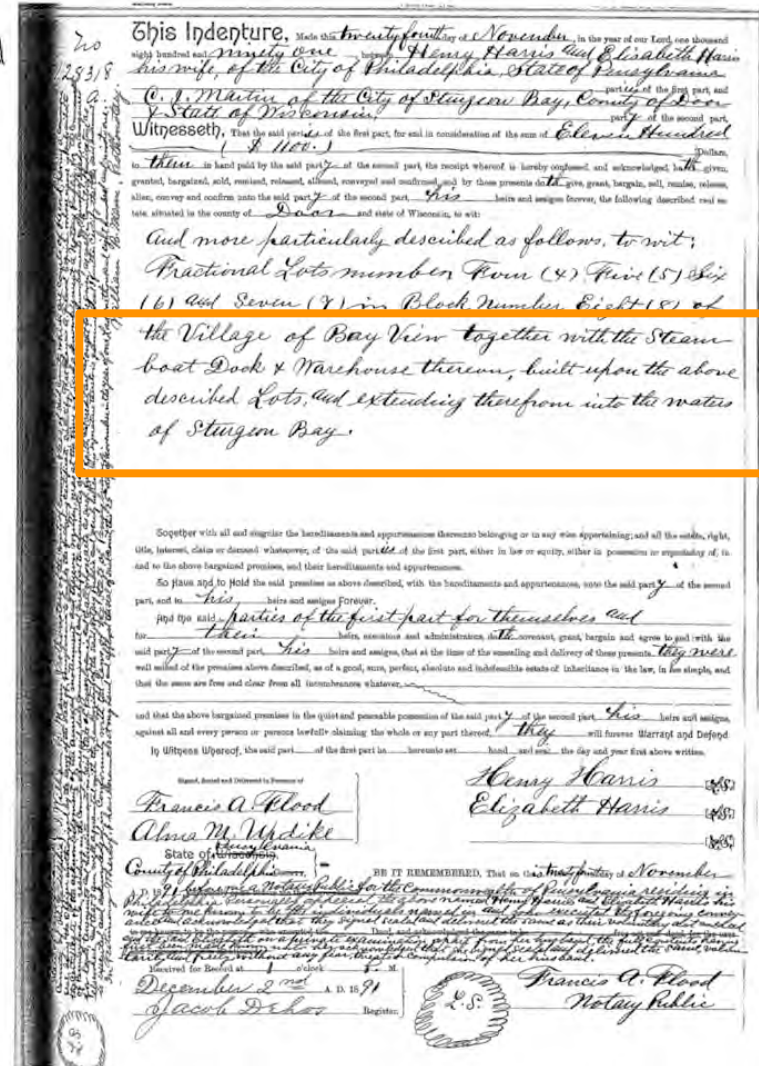 No
28318
This Indenture, Made this twenty fourth day of November, in the year of our Lord, one thousand
eight hundred and ninety one between Henry Harris and Elisabeth Harris
his wife, of the City of Philadelphia, State of Pensylvania
parties of the first part, and
C. J. Martin of the City of Sturgeon Bay, County of Door
& State of Wisconsin, party of the second part,
Witnesseth, That the said parties of the first part, for and in consideration of the sum of Eleven Hundred
($ 1100.) Dollars,
to them in hand paid by the said party of the second part, the receipt whereof is hereby confessed and acknowledged, hath given,
granted, bargained, sold, remised, released, aliened, conveyed and confirmed, and by these presents doth give, grant, bargain, sell, remise, release,
alien, convey and confirm unto the said party of the second part, his heirs and assigns forever, the following described real es-
tate, situated in the county of Door and state of Wisconsin, to wit:
And more particularly described as follows, to wit;
Fractional Lots number Four (4) Five (5) Six
(6) and Seven (7) in Block Number Eight (8) of
the Village of Bay View together with the Steam
boat Dock & Warehouse thereon, built upon the above
described Lots, and extending therefrom into the waters
of Sturgeon Bay.
Together with all and singular the hereditaments and appurtenances thereunto belonging or in any wise appertaining; and all the estate, right,
title, interest, claim or demand whatsoever, of the said parties of the first part, either in law or equity, either in possession or expectancy of, in
and to the above bargained premises, and their hereditaments and appurtenances.
To Have and to Hold the said premises as above described, with the hereditaments and appurtenances, unto the said party of the second
part, and to his heirs and assigns Forever.
And the said parties of the first part for themselves and
for their heirs, executors and administrators, doth covenant, grant, bargain and agree to and with the
said party of the second part, his heirs and assigns, that at the time of the ensealing and delivery of these presents they were
well seized of the premises above described, as of a good, sure, perfect, absolute and indefeasible estate of inheritance in the law, in fee simple, and
that the same are free and clear from all incumbrances whatever,
and that the above bargained premises in the quiet and peaceable possession of the said party of the second part, his heirs and assigns,
against all and every person or persons lawfully claiming the whole or any part thereof, they will forever Warrant and Defend
In Witness Whereof, the said part of the first part ha hereunto set hand and seal the day and year first above written.
Signed, Sealed and Delivered in Presence of
Henry Harris (L.S.)
Francis A. Flood
Elizabeth Harris (L.S.)
Alma M. Updike
(L.S.)
Pensylvania
State of Wisconsin,
County of Philadelphia BE IT REMEMBERED, That on the twenty fourth day of November
A. D. 1891 before me a Notary Public for the Commonwealth of Pensylvania residing in
Philadelphia personally appeared the above named Henry Harris and Elizabeth Harris his
wife to me known to be the individuals named in and who executed the foregoing conveyance
and acknowledged that they signed sealed and delivered the same as their voluntary act and deed
Received for Record at 1 o'clock P. M.
December 2nd A. D. 1891
Jacob Dehos Register.
L. S.
Francis A. Flood
Notary Public